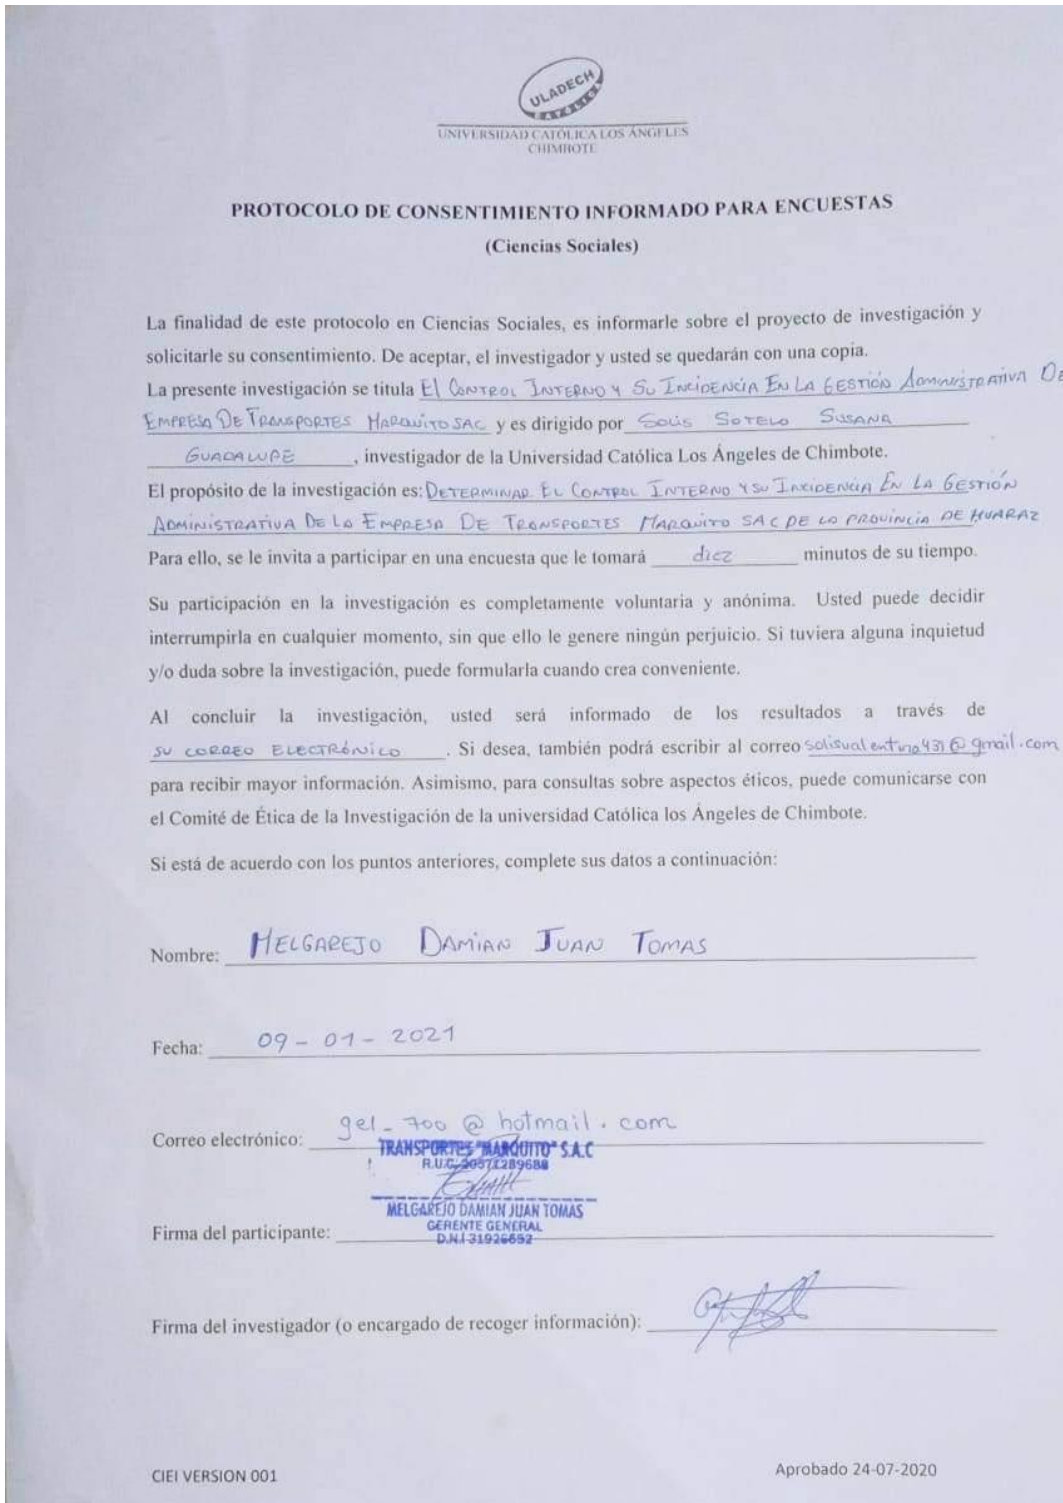 ULADECH
CATÓLICA
UNIVERSIDAD CATÓLICA LOS ÁNGELES
CHIMBOTE
PROTOCOLO DE CONSENTIMIENTO INFORMADO PARA ENCUESTAS
(Ciencias Sociales)
La finalidad de este protocolo en Ciencias Sociales, es informarle sobre el proyecto de investigación y
solicitarle su consentimiento. De aceptar, el investigador y usted se quedarán con una copia.
La presente investigación se titula El CONTROL INTERNO Y SU INCIDENCIA EN LA GESTIÓN ADMINISTRATIVA DE
EMPRESA DE TRANSPORTES MARQUITO SAC y es dirigido por SOLIS SOTELO SUSANA
GUADALUPE, investigador de la Universidad Católica Los Ángeles de Chimbote.
El propósito de la investigación es: DETERMINAR EL CONTROL INTERNO Y SU INCIDENCIA EN LA GESTIÓN
ADMINISTRATIVA DE LA EMPRESA DE TRANSPORTES MARQUITO SAC DE LA PROVINCIA DE HUARAZ
Para ello, se le invita a participar en una encuesta que le tomará diez minutos de su tiempo.
Su participación en la investigación es completamente voluntaria y anónima. Usted puede decidir
interrumpirla en cualquier momento, sin que ello le genere ningún perjuicio. Si tuviera alguna inquietud
y/o duda sobre la investigación, puede formularla cuando crea conveniente.
Al concluir la investigación, usted será informado de los resultados a través de
SU CORREO ELECTRÓNICO. Si desea, también podrá escribir al correo solisvalentina431@gmail.com
para recibir mayor información. Asimismo, para consultas sobre aspectos éticos, puede comunicarse con
el Comité de Ética de la Investigación de la universidad Católica los Ángeles de Chimbote.
Si está de acuerdo con los puntos anteriores, complete sus datos a continuación:
Nombre: MELGAREJO DAMIAN JUAN TOMAS
Fecha: 09-01-2021
Correo electrónico: gel_700@hotmail.com
TRANSPORTES "MARQUITO" S.A.C
R.U.C.
MELGAREJO DAMIAN JUAN TOMAS
GERENTE GENERAL
Firma del participante:
D.N.I 31926652
Firma del investigador (o encargado de recoger información):
CIEI VERSION 001
Aprobado 24-07-2020